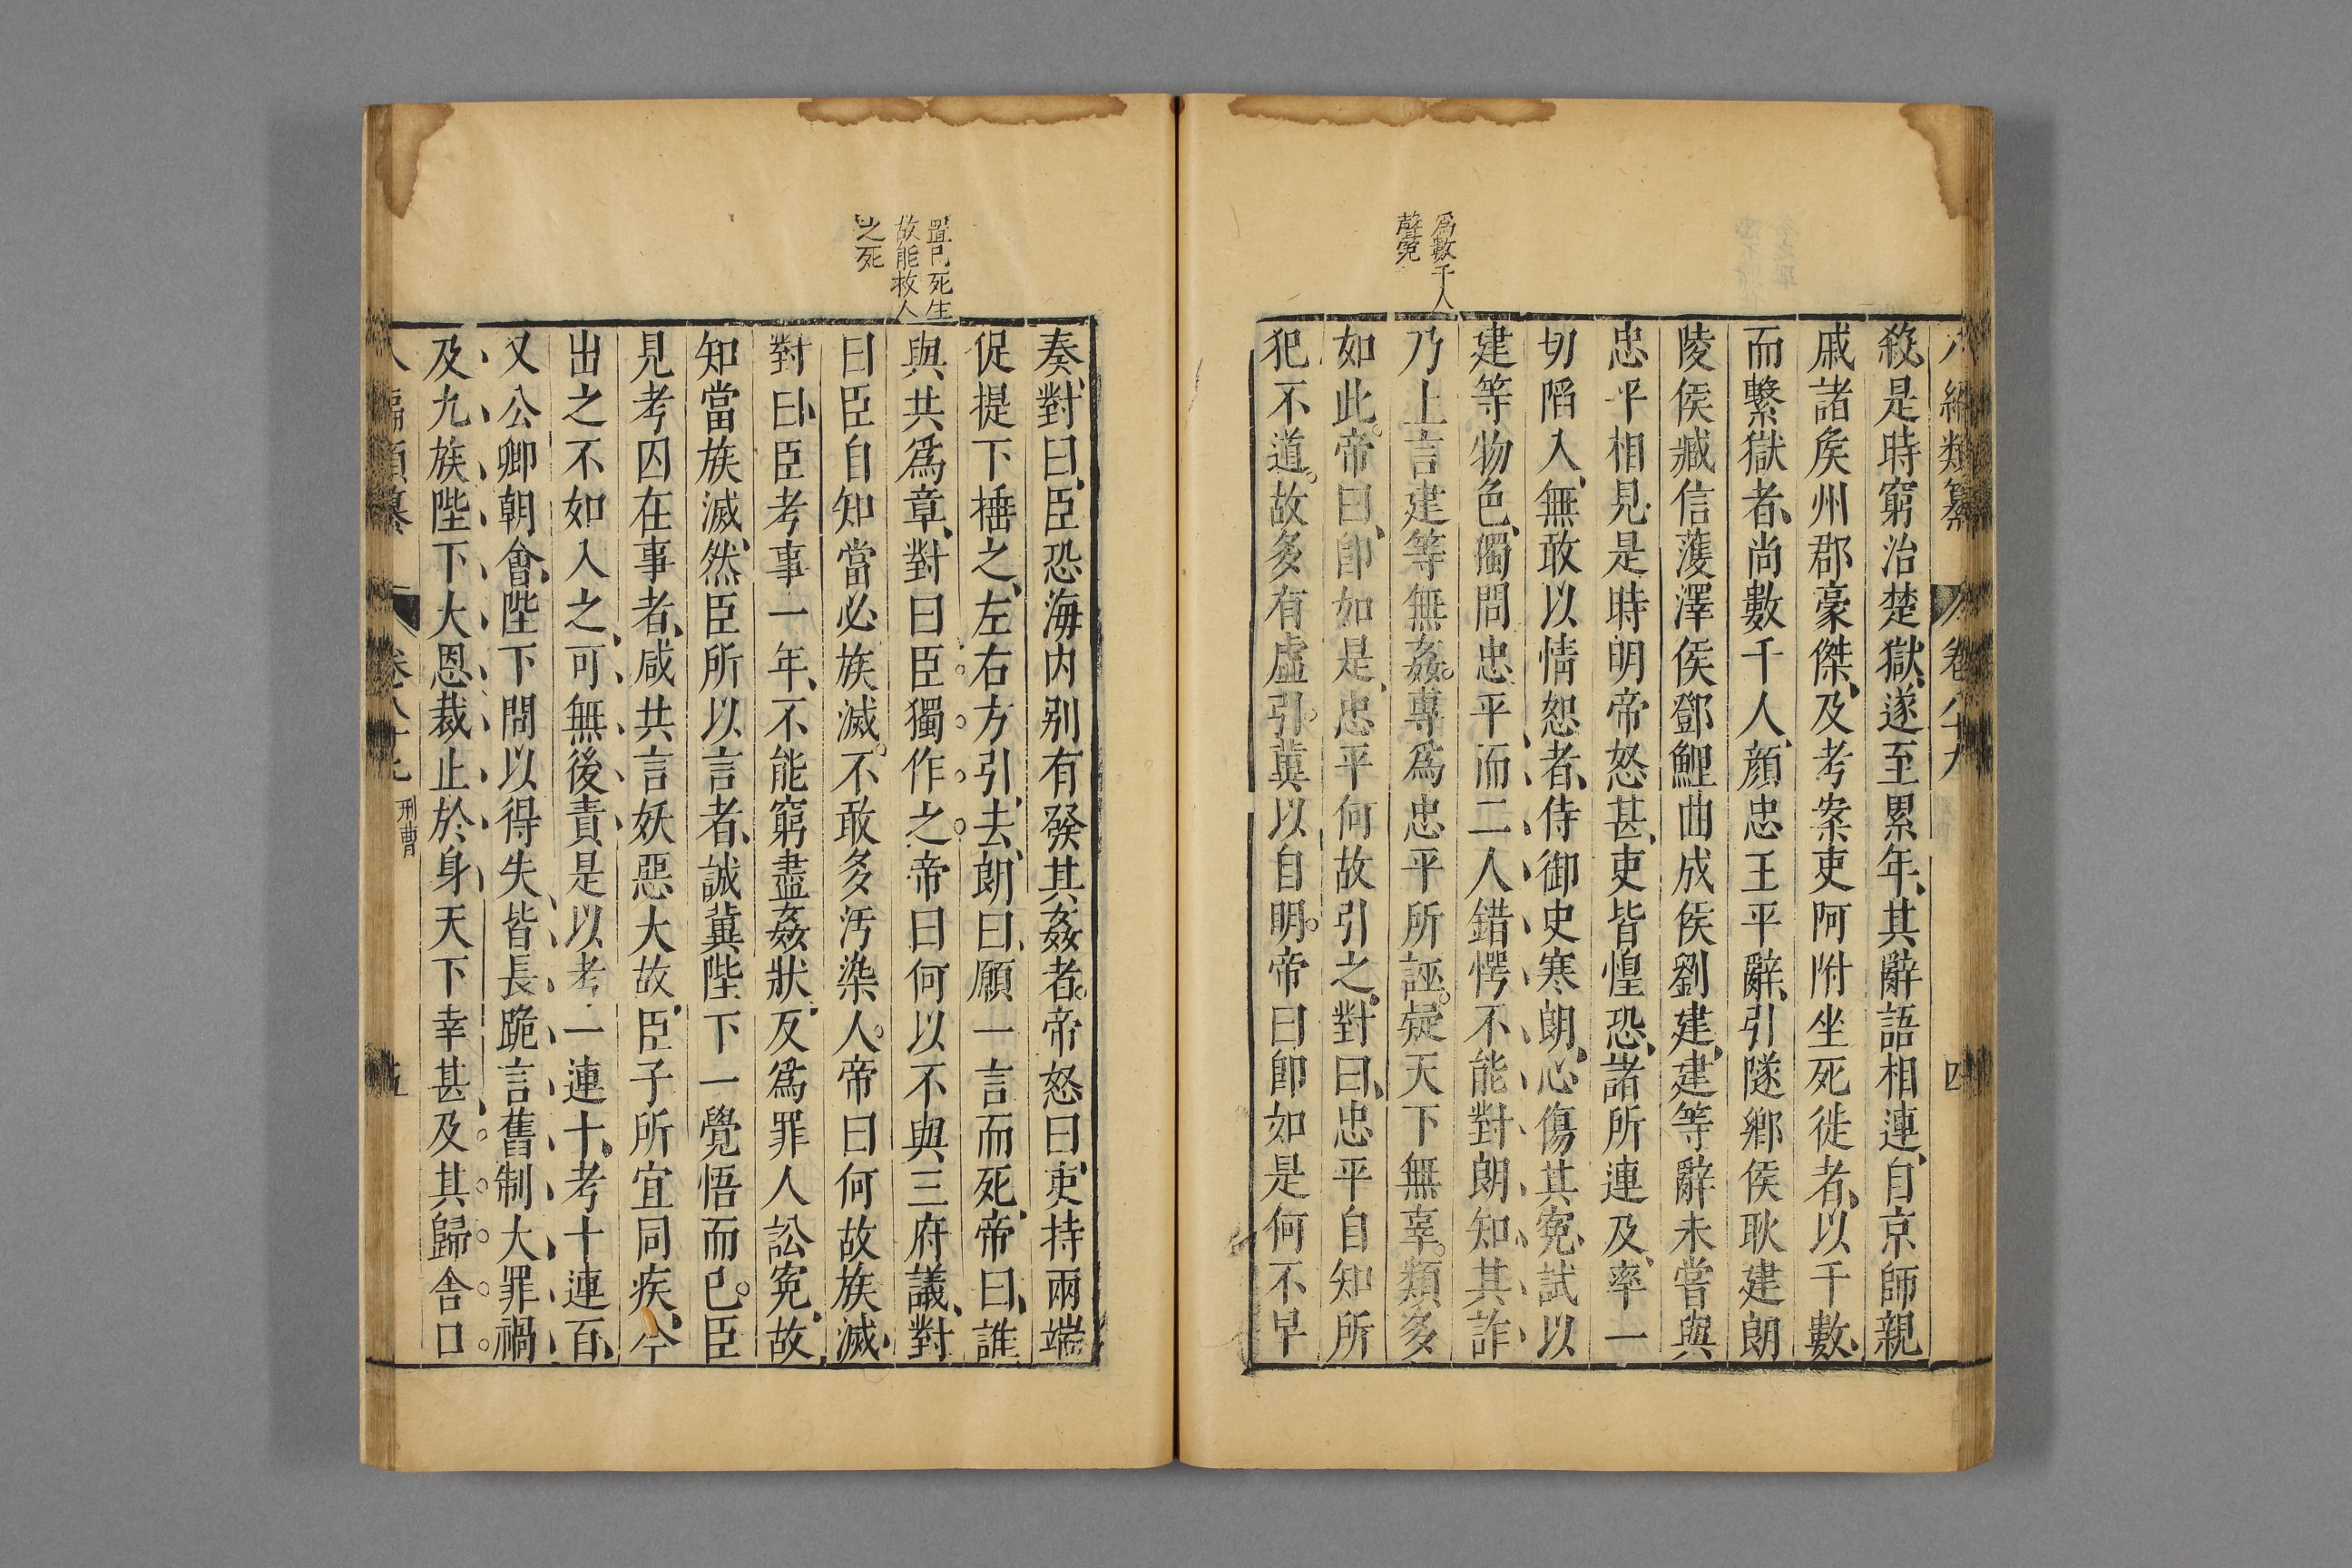 八編類纂 卷八十九 四
爲數千人
聲寃
殺是時窮治楚獄遂至累年其辭語相連自京師親
戚諸矦州郡豪傑及考案吏阿附坐死徙者以千數
而繫獄者尚數千人顔忠王平辭引隧鄉侯耿建朗
陵侯臧信濩澤侯鄧鯉曲成侯劉建建等辭未嘗與
忠平相見是時明帝怒甚吏皆惶恐諸所連及率一
切陷入無敢以情恕者侍御史寒朗心傷其寃試以
建等物色獨問忠平而二人錯愕不能對朗知其詐
乃上言建等無姦專爲忠平所誣疑天下無辜類多
如此帝曰卽如是忠平何故引之對曰忠平自知所
犯不道故多有虛引冀以自明帝曰卽如是何不早
置己死生
故能救人
之死
奏對曰臣恐海内别有發其姦者帝怒曰吏持兩端
促提下捶之左右方引去朗曰願一言而死帝曰誰
與共爲章對曰臣獨作之帝曰何以不與三府議對
曰臣自知當必族滅不敢多汚染人帝曰何故族滅
對曰臣考事一年不能窮盡姦狀反爲罪人訟寃故
知當族滅然臣所以言者誠冀陛下一覺悟而已臣
見考囚在事者咸共言妖惡大故臣子所宜同疾今
出之不如入之可無後責是以考一連十考十連百
又公卿朝會陛下問以得失皆長跪言舊制大罪禍
及九族陛下大恩裁止於身天下幸甚及其歸舍口
八編類纂 卷八十九 刑曹 五